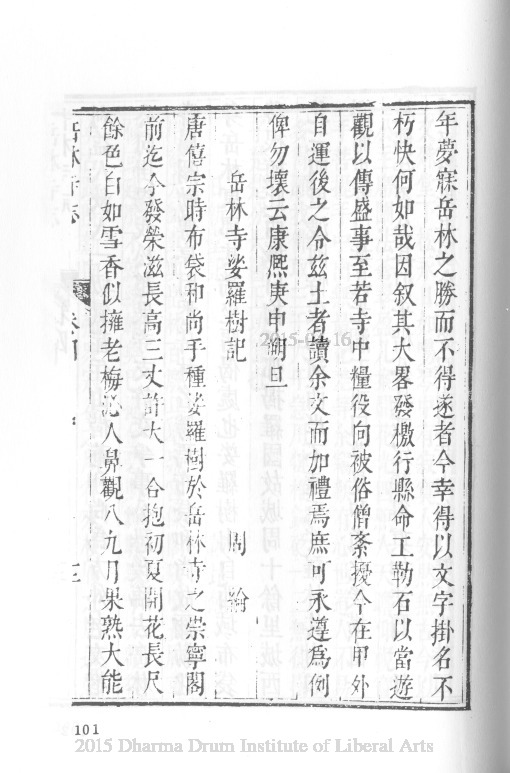 年夢寐岳林之勝而不得遂者今幸得以文字掛名不
朽快何如哉因叙其大畧發檄行縣命工勒石以當遊
觀以傳盛事至若寺中糧役向被俗僧紊擾今在甲外
自運後之令茲土者讀余文而加禮焉庶可永遵為例
俾勿壞云康熙庚申朔旦
岳林寺娑羅樹記
周綸
唐僖宗時布袋和尚手種娑羅樹於岳林寺之崇寧閣
前迄今發榮滋長高三丈許大一合抱初夏開花長尺
餘色白如雪香似擁老梅沁人鼻觀八九月果熟大能
岳林寺志
卷四
三
101
2015 Dharma Drum Institute of Liberal Arts